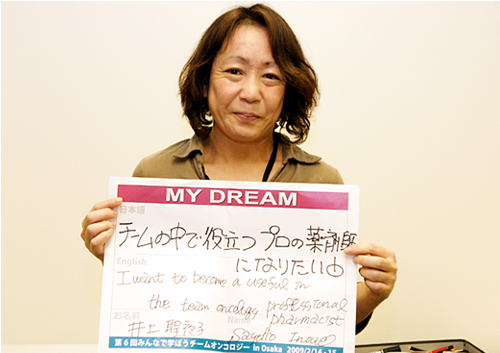 MY DREAM
日本語
チームの中で役立つプロの薬剤師
になりたい
English
I want to become a useful in
the team oncology professional
pharmacist
お名前
Name
井上
Inoue
第6回みんなで学ぼうチームオンコロジー in Osaka 2009/2/14-15